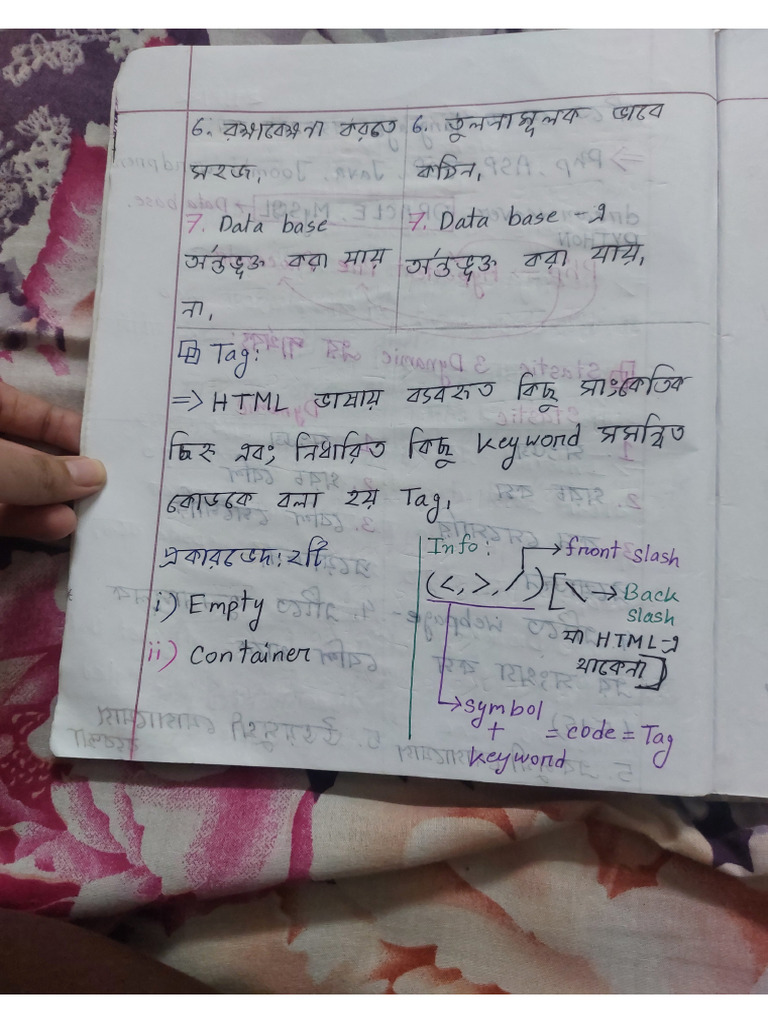 6. রক্ষাবেক্ষনা করতে
সহজ,
7. Data base
অর্ন্তভুক্ত করা যায়
না,
6. তুলনামূলক ভাবে
কঠিন,
7. Data base-এ
অর্ন্তভুক্ত করা যায়,
Tag:
=> HTML ভাষায় ব্যবহৃত কিছু সাংকেতিক
চিহ্ন এবং নির্ধারিত কিছু keyword সমন্বিত
কোডকে বলা হয় Tag,
প্রকারভেদ: ২টি
i) Empty
ii) Container
Info:
→ front slash
(<, >, /) [\ → Back
slash
যা HTML-এ
থাকেনা]
→ symbol
+
keyword
= code = Tag